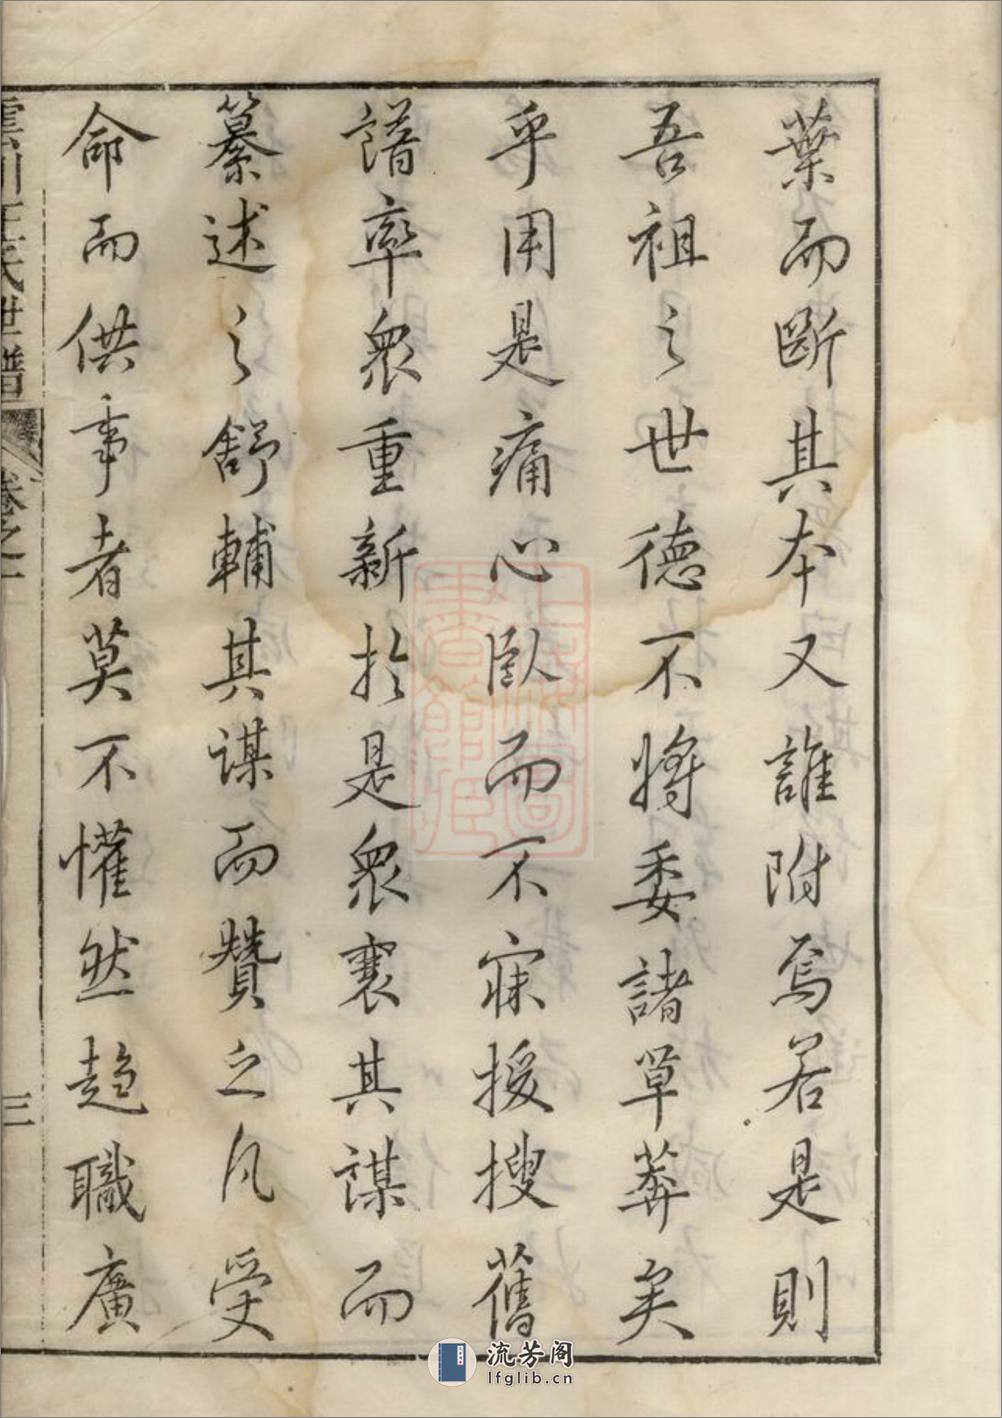 葉而斷其本又誰附焉若是則
吾祖之世德不將委諸草莽矣
乎用是痛心臥而不寐援搜舊
譜率衆重新於是衆襄其謀而
纂述之舒輔其謀而贊之凡受
命而供事者莫不懽然趋職廣
王氏世譜 卷之一
三
流芳阁
lfglib.cn